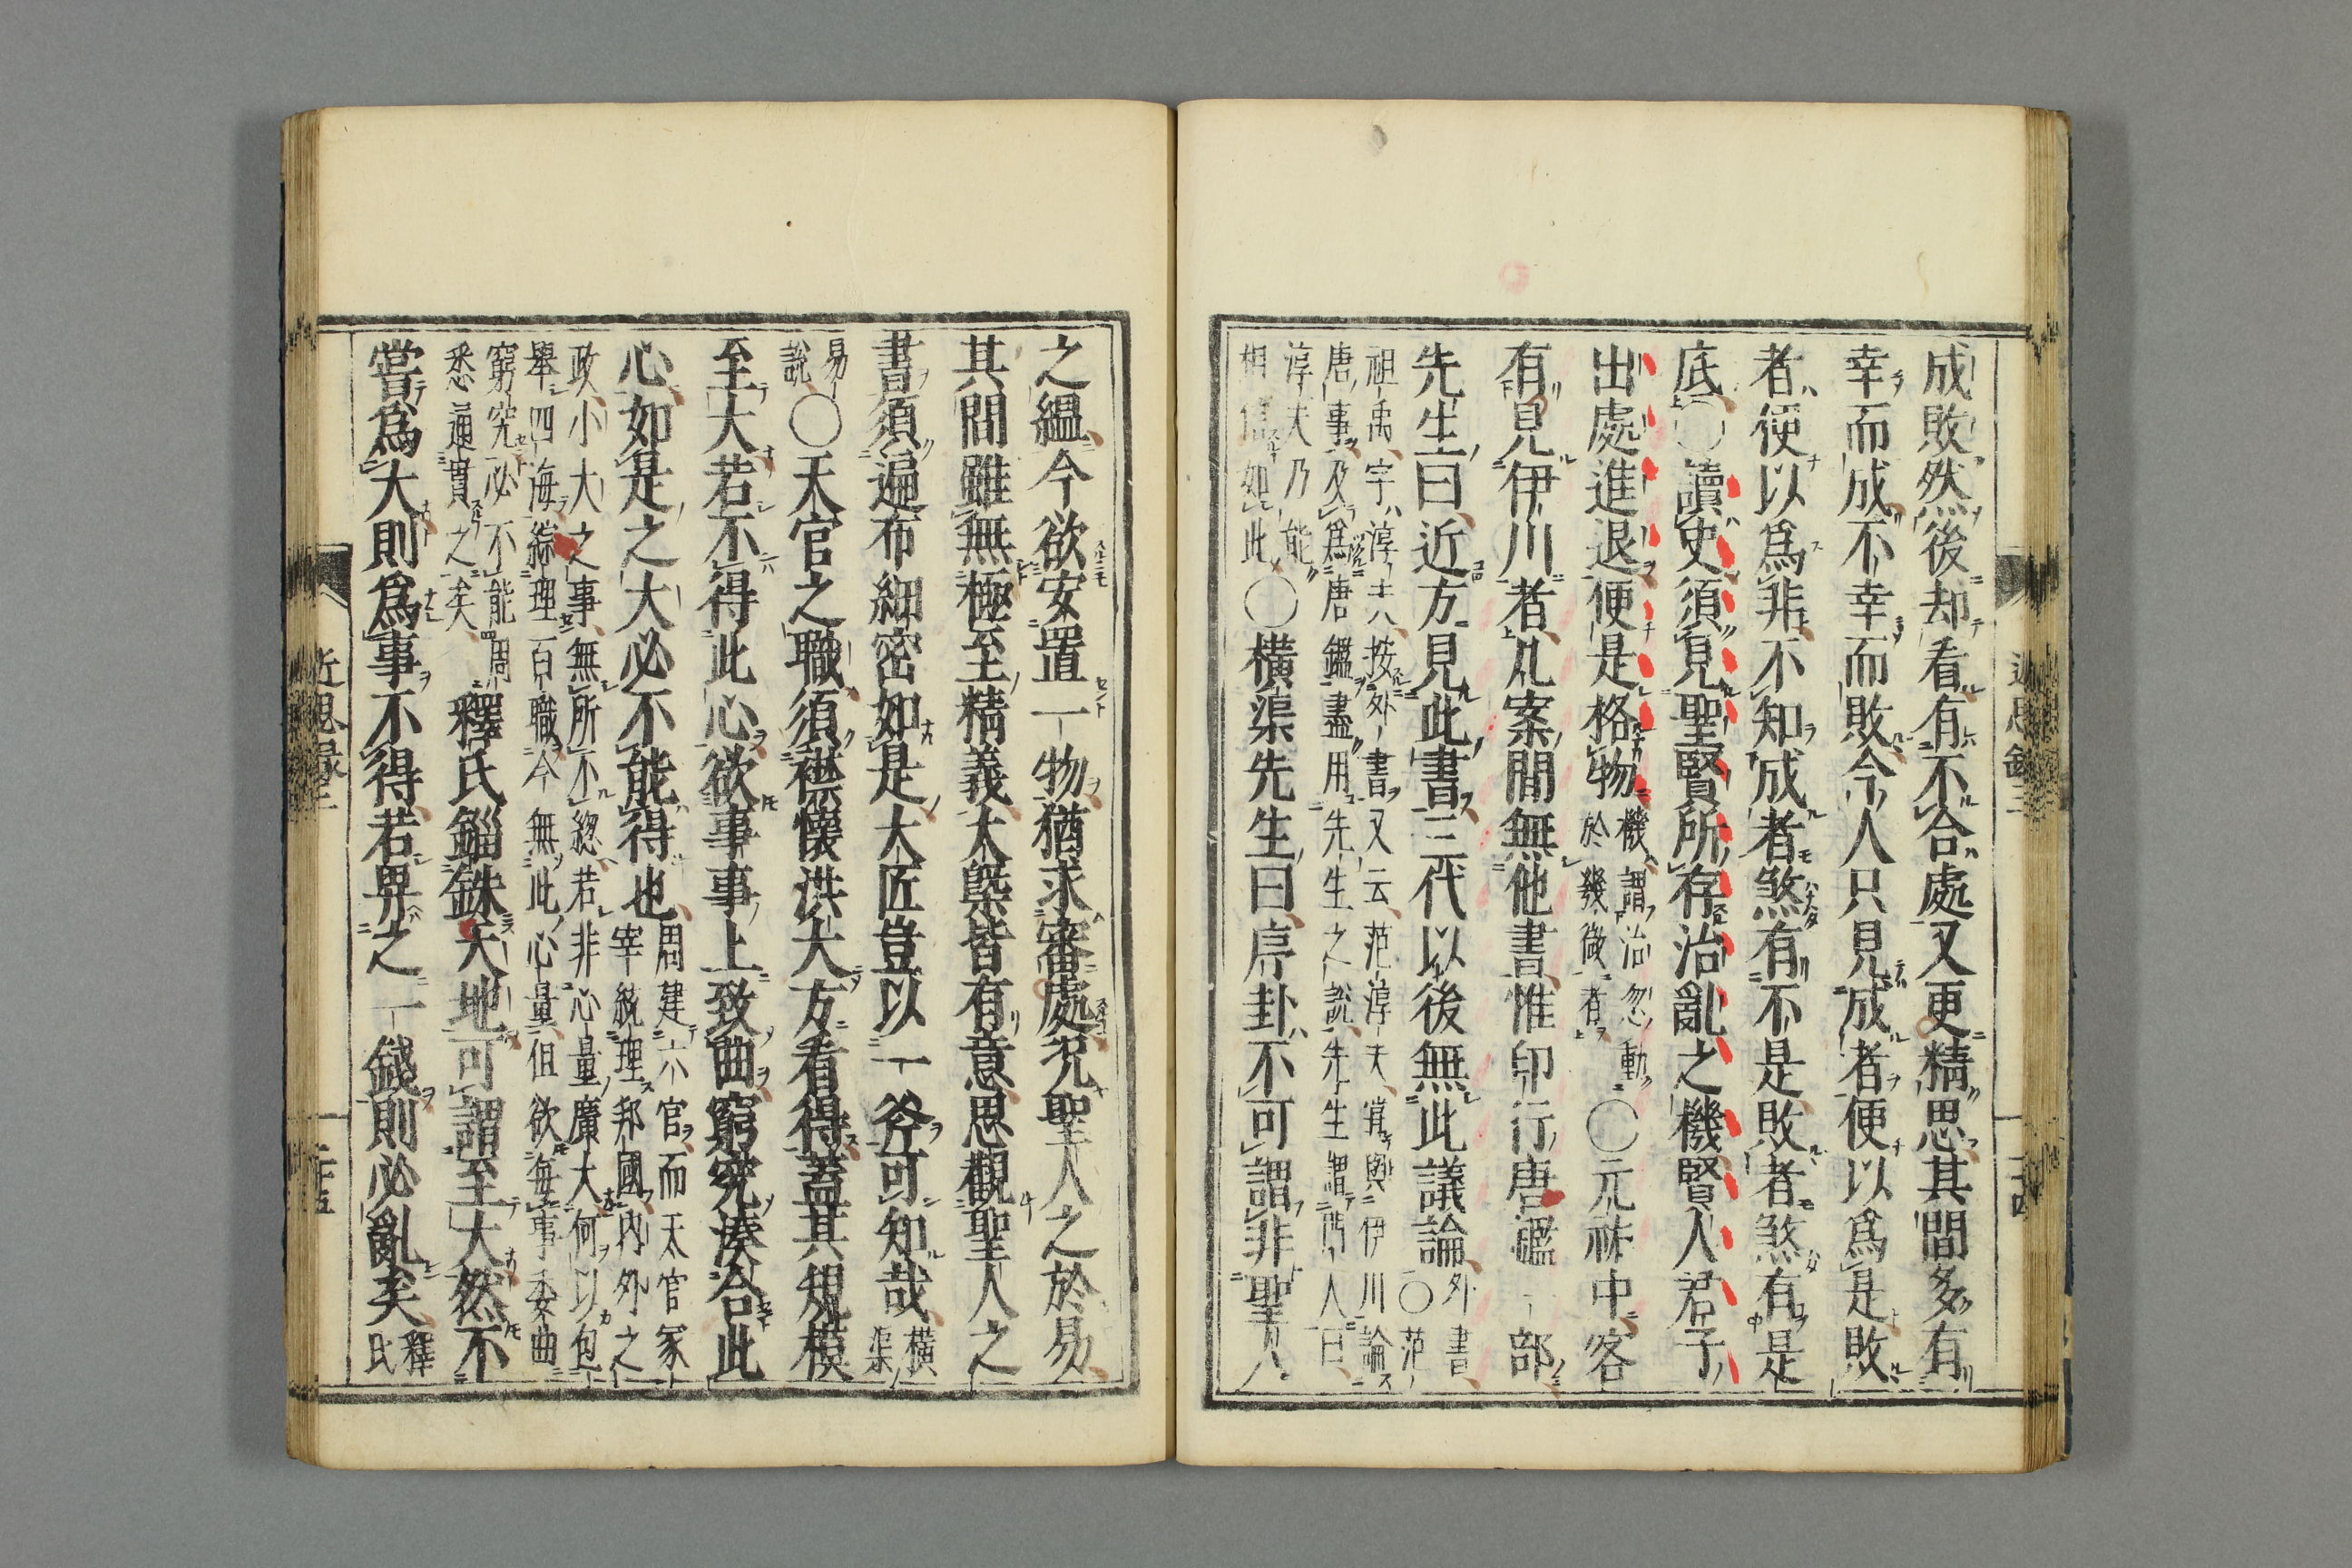 成敗然後却看有不合處又更精思其間多有
幸而成不幸而敗今人只見成者便以爲是敗
者便以爲非不知成者煞有不是敗者煞有是
底〇讀史須見聖賢所存治亂之機賢人君子
出處進退便是格物機謂治忽動於幾微者〇元祐中客
有見伊川者几案間無他書惟印行唐鑑一部
先生曰近方見此書三代以後無此議論外書〇范
祖禹字淳夫按外書又云范淳夫嘗與伊川論
唐事及爲唐鑑盡用先生之說先生謂門人曰
淳夫乃能
相信如此〇橫渠先生曰序卦不可謂非聖人
之縕今欲安置一物猶求審處況聖人之於易
其間雖無極至精義大槩皆有意思觀聖人之
書須遍布細密如是大匠豈以一斧可知哉橫渠
易說〇天官之職須襟懷洪大方看得蓋其規模
至大若不得此心欲事事上致曲窮究湊合此
心如是之大必不能得也周建六官而天官冢
宰統理邦國內外之
政小大之事無所不總若非心量廣大何以包
舉四海綜理百職今無此心量但欲每事委曲
窮究必不能周
悉通貫之矣釋氏錙銖天地可謂至大然不
嘗爲大則爲事不得若畀之一錢則必亂矣釋氏
近思录三
二十五